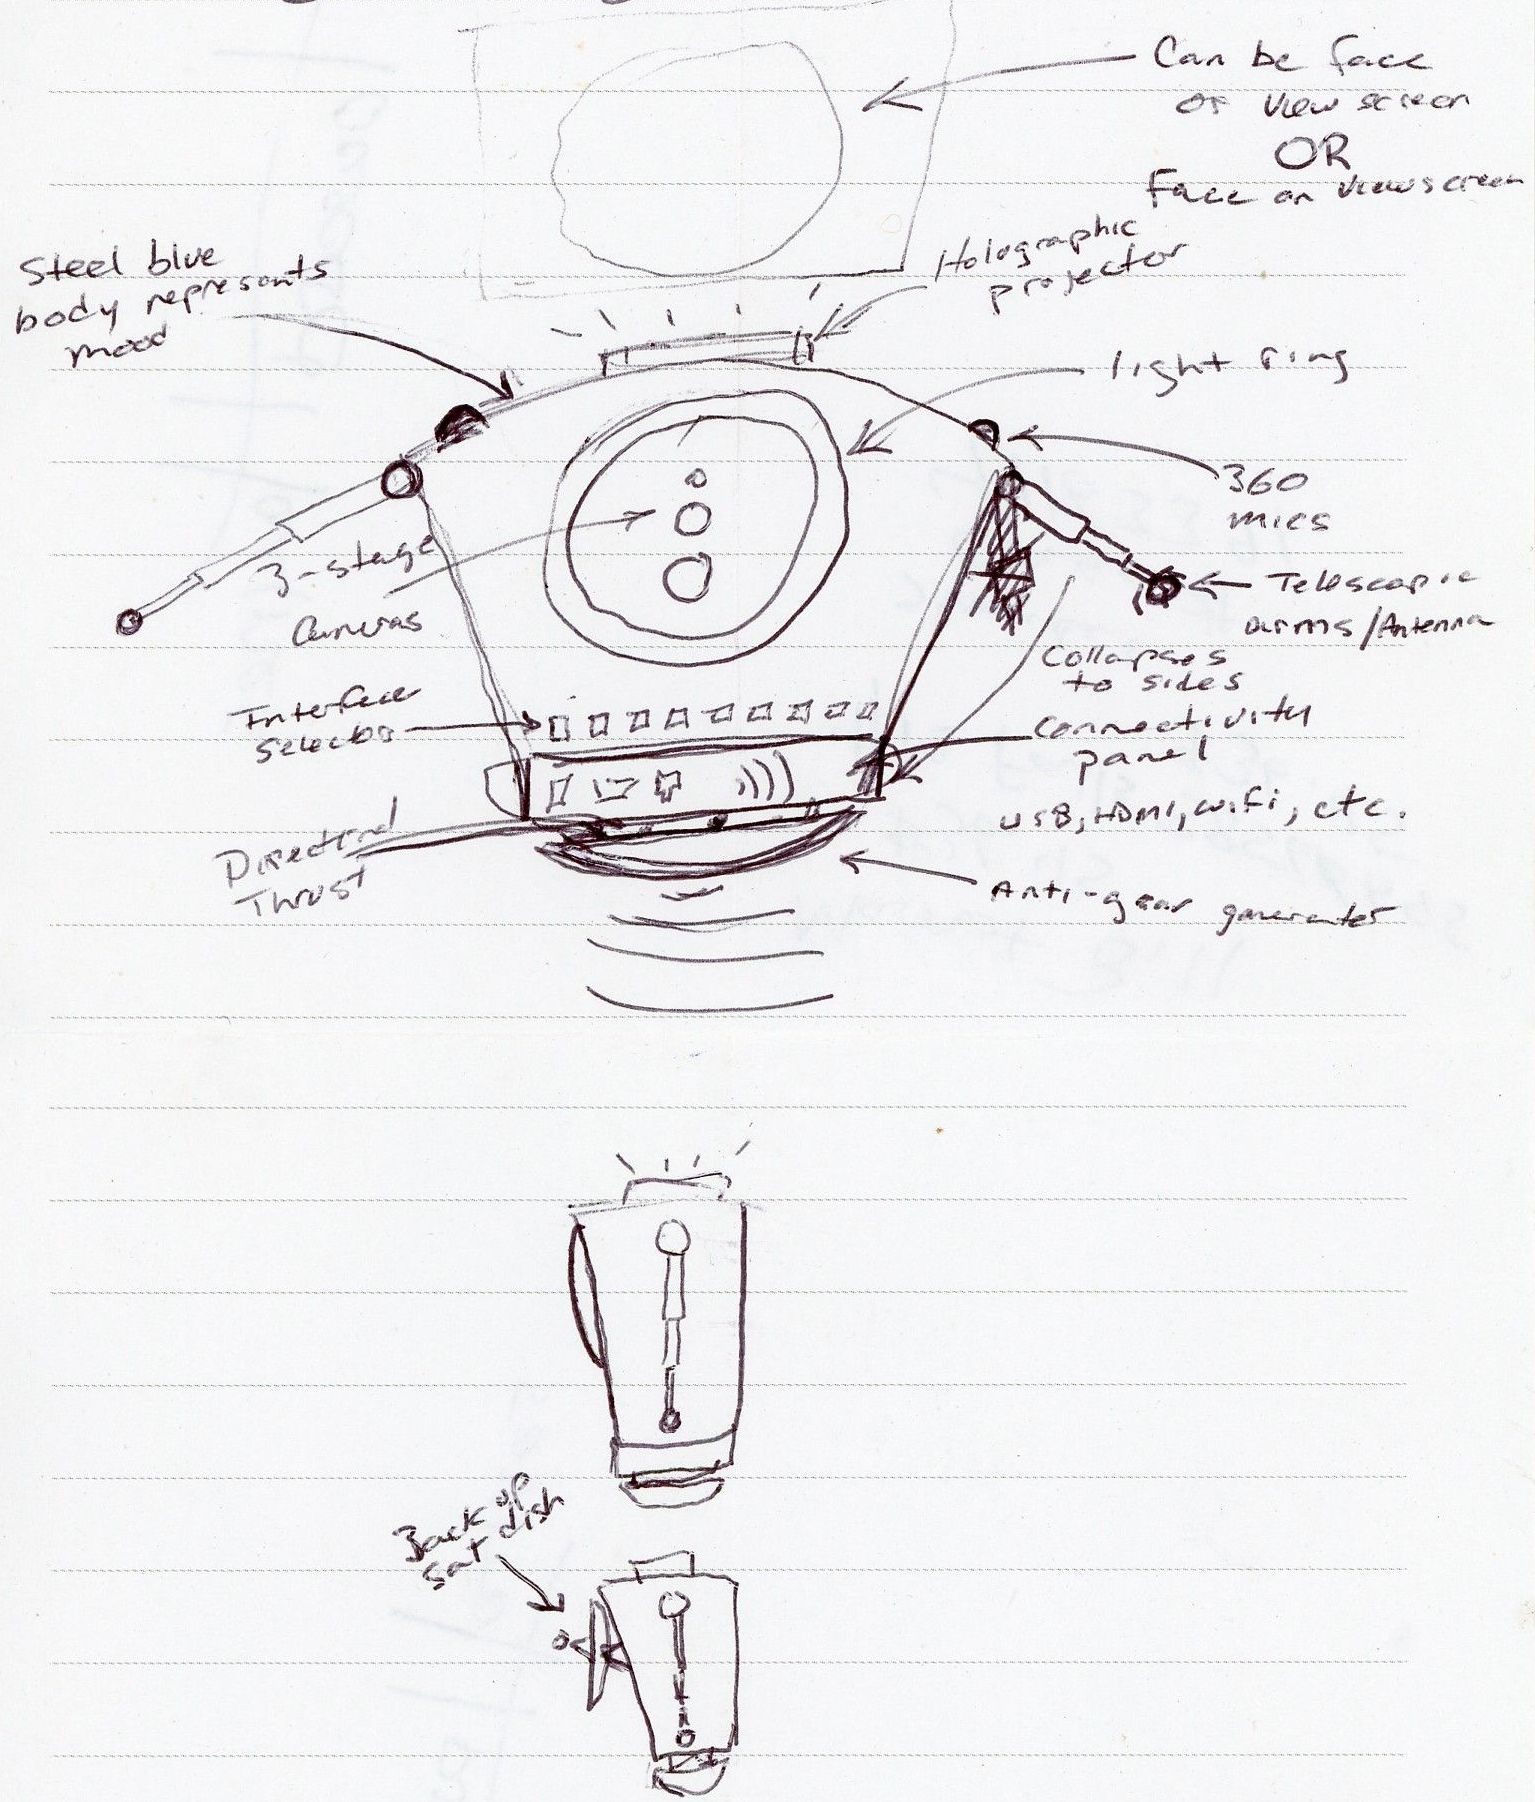 Can be face
or view screen
OR
Face on viewscreen
Holographic
projector
Steel blue
body represents
mood
light ring
360
mics
3-stage
Cameras
Telescopic
arms/Antenna
Collapses
to sides
Interface
selector
Connectivity
panel
USB, HDMI, wifi, etc.
Directed
Thrust
Anti-grav generator
Back of
sat dish